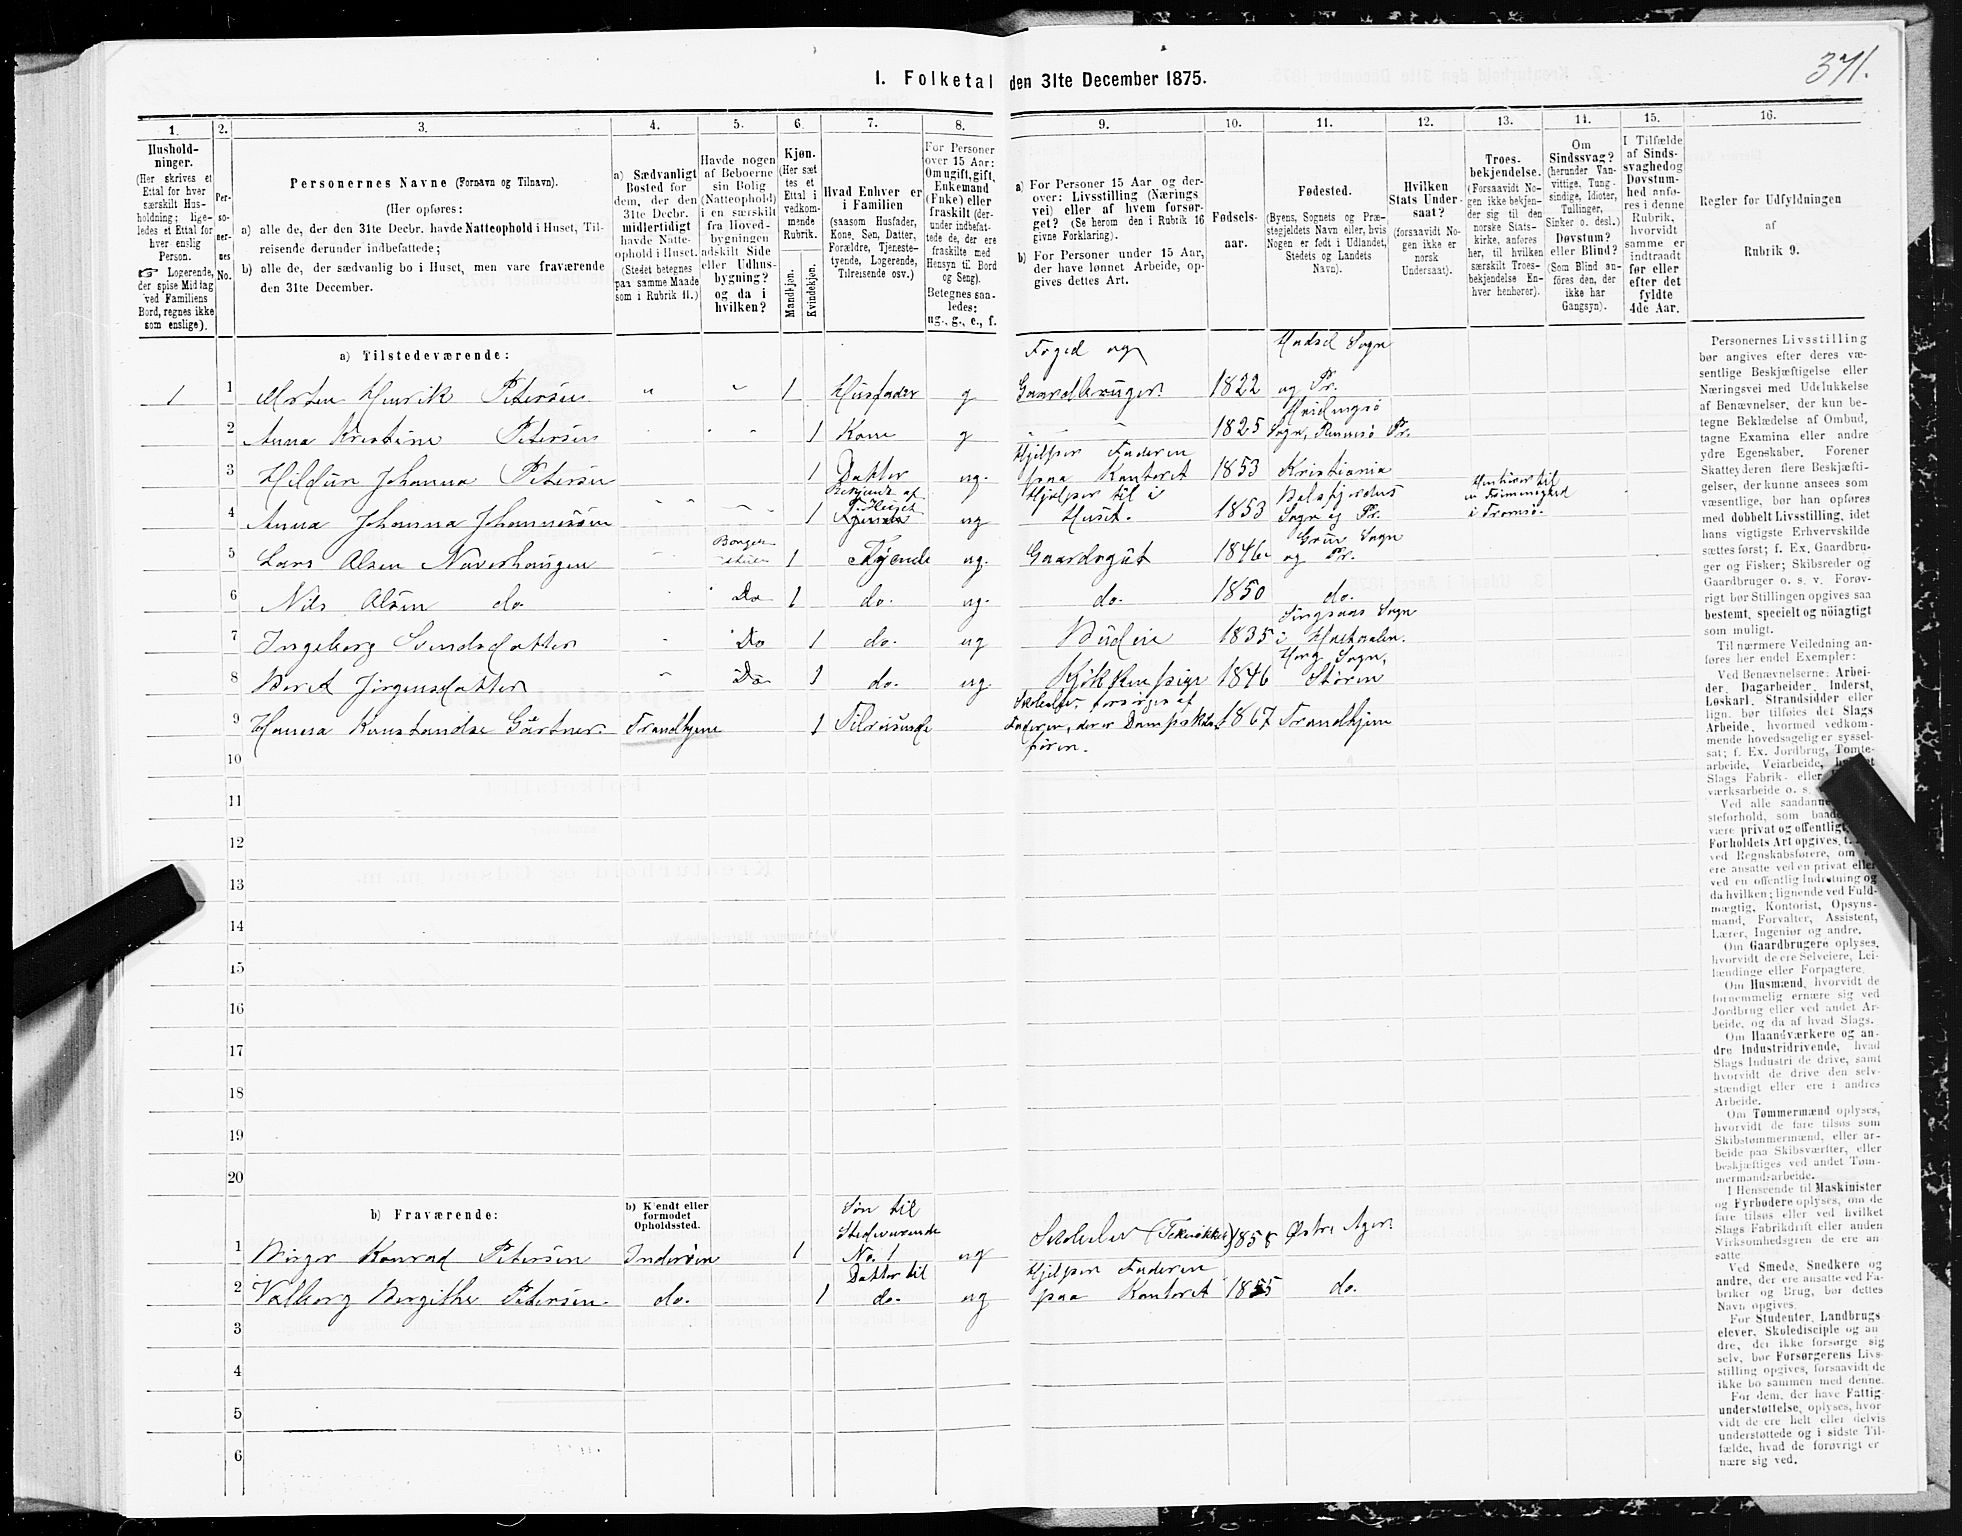 371.
1. Folketal den 31te December 1875.
1. 2. 3. 4. 5. 6. 7. 8. 9. 10. 11. 12. 13. 14. 15. 16.
Hushold-
ninger.
(Her skrives et
Ettal for hver
særskilt Hus-
holdning; lige-
ledes et Ettal for
hver enslig
Person.
☞ Logerende,
der spise Middag
ved Familiens
Bord, regnes ikke
som enslige).
Per-
so-
ner-
nes
No.
Personernes Navne (Fornavn og Tilnavn).
(Her opføres:
a) alle de, der den 31te Decbr. havde Natteophold i Huset, Til-
reisende derunder indbefattede;
b) alle de, der sædvanlig bo i Huset, men vare fraværende
den 31te December.
a) Sædvanligt
Bosted for
dem, der den
31te Decbr.
midlertidigt
havde Natte-
ophold i Huset.
(Stedet betegnes
paa samme Maade
som i Rubrik 11.)
Havde nogen
af Beboerne
sin Bolig
(Natteophold)
i en særskilt
fra Hoved-
bygningen
adskilt Side
eller Udhus-
bygning?
og da i
hvilken?
Kjøn.
(Her sæt-
tes et
Ettal i
vedkom-
mende
Rubrik.
Mandkjøn.
Kvindekjøn.
Hvad Enhver er
i Familien
(saasom Husfader,
Kone, Søn, Datter,
Forældre, Tjeneste-
tyende, Logerende,
Tilreisende osv.)
For Personer
over 15 Aar:
Om ugift, gift,
Enkemand
(Enke) eller
fraskilt (der-
under indbefat-
tede de, der ere
fraskilte med
Hensyn til Bord
og Seng).
Betegnes saa-
ledes:
ug., g., e., f.
a) For Personer 15 Aar og der-
over: Livsstilling (Nærings-
vei) eller af hvem forsør-
get? (Se herom den i Rubrik 16
givne Forklaring).
b) For Personer under 15 Aar,
der have lønnet Arbeide, op-
gives dettes Art.
Fødsels-
aar.
Fødested.
(Byens, Sognets og Præ-
stegjeldets Navn eller, hvis
Nogen er født i Udlandet,
Stedets og Landets
Navn).
Hvilken
Stats Under-
saat?
(forsaavidt No-
gen ikke er
norsk
Undersaat).
Troes-
bekjendelse.
(Forsaavidt No-
gen ikke bekjen-
der sig til den
norske Stats-
kirke, anføres
her, til hvilken
særskilt Troes-
bekjendelse En-
hver henhører).
Om
Sindssvag?
(herunder Van-
vittige, Tung-
sindige, Idioter,
Tullinger,
Sinker o. desl.)
Døvstum?
eller Blind?
(Som Blind an-
føres den, der
ikke har
Gangsyn).
I Tilfælde
af Sinds-
svaghed og
Døvstum-
hed anfø-
res i denne
Rubrik,
hvorvidt
samme er
indtraadt
før eller
efter det
fyldte
4de Aar.
Regler for Udfyldningen
af
Rubrik 9.
a) Tilstedeværende:
1 1 Morten Henrik Petersen " " 1 Husfader g Foged og Gaardbruger. 1822 Hadsel Sogn og Pr.
2 Anna Kristine Petersen 1 Kone g 1825 Hvidingsö Sogn, Rennesö Pr.
3 Hildur Johanna Petersen 1 Datter ug. Hjelper Faderen paa Kontoret 1853 Kristiania
4 Anna Johanna Johannesen 1 ug Hjelper til i Huset. 1853 Balsfjordens Sogn og Pr. Henhører til en Frimenighed i Tromsö.
5 Lars Olsen Naverhaugen Borgestuen 1 Tyende ug. Gaardsgut 1846 Grue Sogn og Pr.
6 Nils Olsen do Do 1 do. ug. do. 1850 do.
7 Ingeborg Svendsdatter Do 1 do. ug Budeie 1835 Singsaas Sogn i Holtaalen.
8 Berit Jörgensdatter Do 1 do. ug. Kjökkenpige 1846 Horg Sogn, Stören
9 Hanna Konstandse Gärtner. Trondhjem 1 Tilreisende Skoleelev, forsörges af Faderen, der er Dampskibsförer. 1867 Trondhjem
10
11
12
13
14
15
16
17
18
19
20
b) Fraværende:
b) Kjendt eller
formodet
Opholdssted.
1 Birger Konrad Petersen Inderöen 1 Søn til Stedværende No. 1 ug Skoleelev (Tekniker) 1858 Østre Ager.
2 Valborg Bergithe Petersen. do. 1 Datter til do. ug Hjelper Faderen paa Kontoret 1855 do.
3
4
5
6
Personernes Livsstilling
bør angives efter deres væ-
sentlige Beskjæftigelse eller
Næringsvei med Udelukkelse
af Benævnelser, der kun be-
tegne Beklædelse af Ombud,
tagne Examina eller andre
ydre Egenskaber. Forener
Skatteyderen flere Beskjæfti-
gelser, der kunne ansees som
væsentlige, bør han opføres
med dobbelt Livsstilling, idet
hans vigtigste Erhvervskilde
sættes først; f. Ex. Gaardbru-
ger og Fisker; Skibsreder og
Gaardbruger o. s. v. Forøv-
rigt bør Stillingen opgives saa
bestemt, specielt og nöiagtigt
som muligt.
Til nærmere Veiledning an-
føres her endel Exempler:
Ved Benævnelserne: Arbei-
der, Dagarbeider, Inderst,
Løskarl, Strandsidder eller
lign. bør tilføies det Slags
Arbeide, hvormed vedkom-
mende hovedsagelig er syssel-
sat; f. Ex. Jordbrug, Tomte-
arbeide, Veiarbeide,
Slags Fabrik- eller
værksarbeide o. s.
Ved alle saadanne
steforhold, som baade
være privat og offentligt,
Forholdets Art opgives,
ved Regnskabsførere, om
ere ansatte ved en privat eller
ved en offentlig Indretning og
da hvilken; lignende ved Fuld-
mægtig, Kontorist, Opsyns-
mand, Forvalter, Assistent,
Lærer, Ingeniør og andre.
Om Gaardbrugere oplyses,
hvorvidt de ere Selveiere, Lei-
lændinge eller Forpagtere.
Om Husmænd, hvorvidt de
fornemmelig ernære sig ved
Jordbrug eller ved andet Ar-
beide, og da af hvad Slags.
Om Haandværkere og an-
dre Industridrivende, hvad
Slags Industri de drive, samt
hvorvidt de drive den selv-
stændigt eller ere i andres
Arbeide.
Om Tømmermænd oplyses,
hvorvidt de fare tilsøs som
Skibstømmermænd, eller ar-
beide paa Skibsværfter, eller
beskjæftiges ved andet Tøm-
mermandsarbeide.
I Henseende til Maskinister
og Fyrbødere oplyses, om de
fare tilsøs eller ved hvilket
Slags Fabrikdrift eller anden
Virksomhedsgren de ere an-
satte.
Ved Smede, Snedkere og
andre, der ere ansatte ved Fa-
briker og Brug, bør dettes
Navn opgives.
For Studenter, Landbrugs-
elever, Skoledisciple og an-
dre, der ikke forsørge sig
selv, bør Forsørgerens Livs-
stilling opgives, forsaavidt de
ikke bo sammen med denne.
For dem, der have Fattig-
understøttelse, oplyses, hvor-
vidt de ere helt eller delvis
understøttede og i sidste Til-
fælde, hvad de forøvrigt er-
nære sig ved.